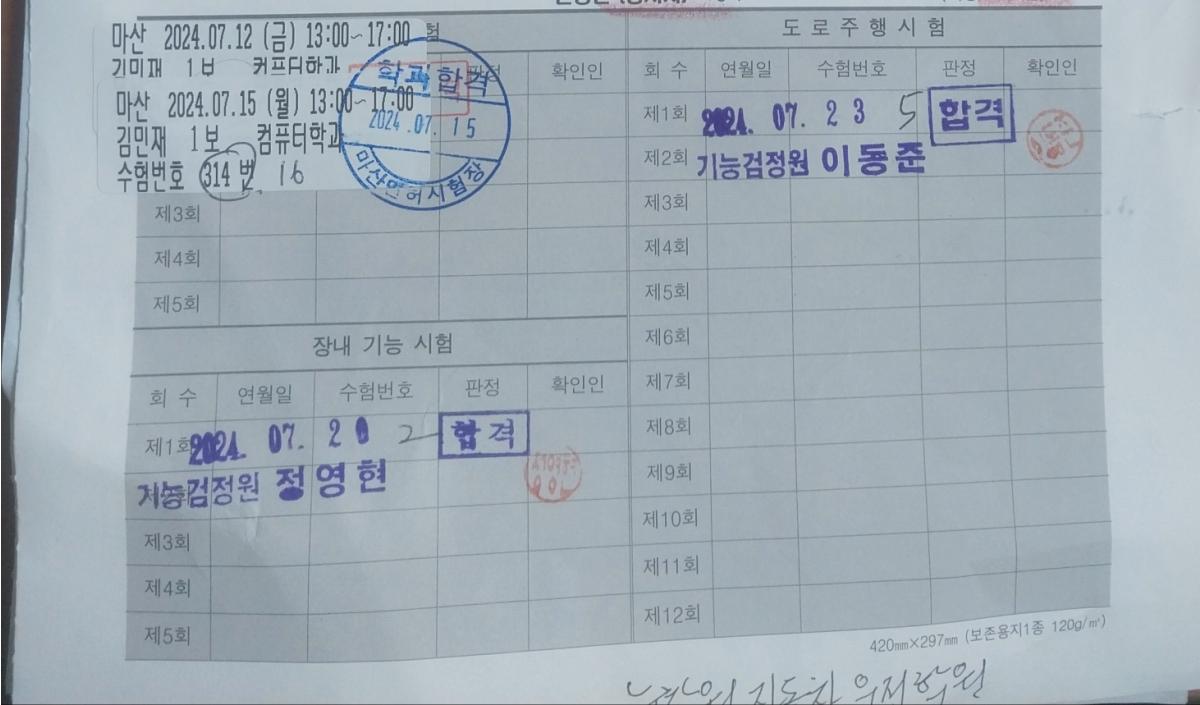 마산 2024.07.12 (금) 13:00~17:00
김민재 1보 컴퓨터학과
마산 2024.07.15 (월) 13:00~17:00
김민재 1보 컴퓨터학과
수험번호 314 번 16
험
판정 확인인
학과합격
2024.07.15
마산면허시험장
제3회
제4회
제5회
장내 기능 시험
회 수 연월일 수험번호 판정 확인인
제1회 2024. 07. 20 2 합격
기능검정원 정영현
제3회
제4회
제5회
도로주행시험
회 수 연월일 수험번호 판정 확인인
제1회 2024. 07. 23 5 합격
제2회 기능검정원 이동준
제3회
제4회
제5회
제6회
제7회
제8회
제9회
제10회
제11회
제12회
420㎜×297㎜ (보존용지1종 120g/㎡)